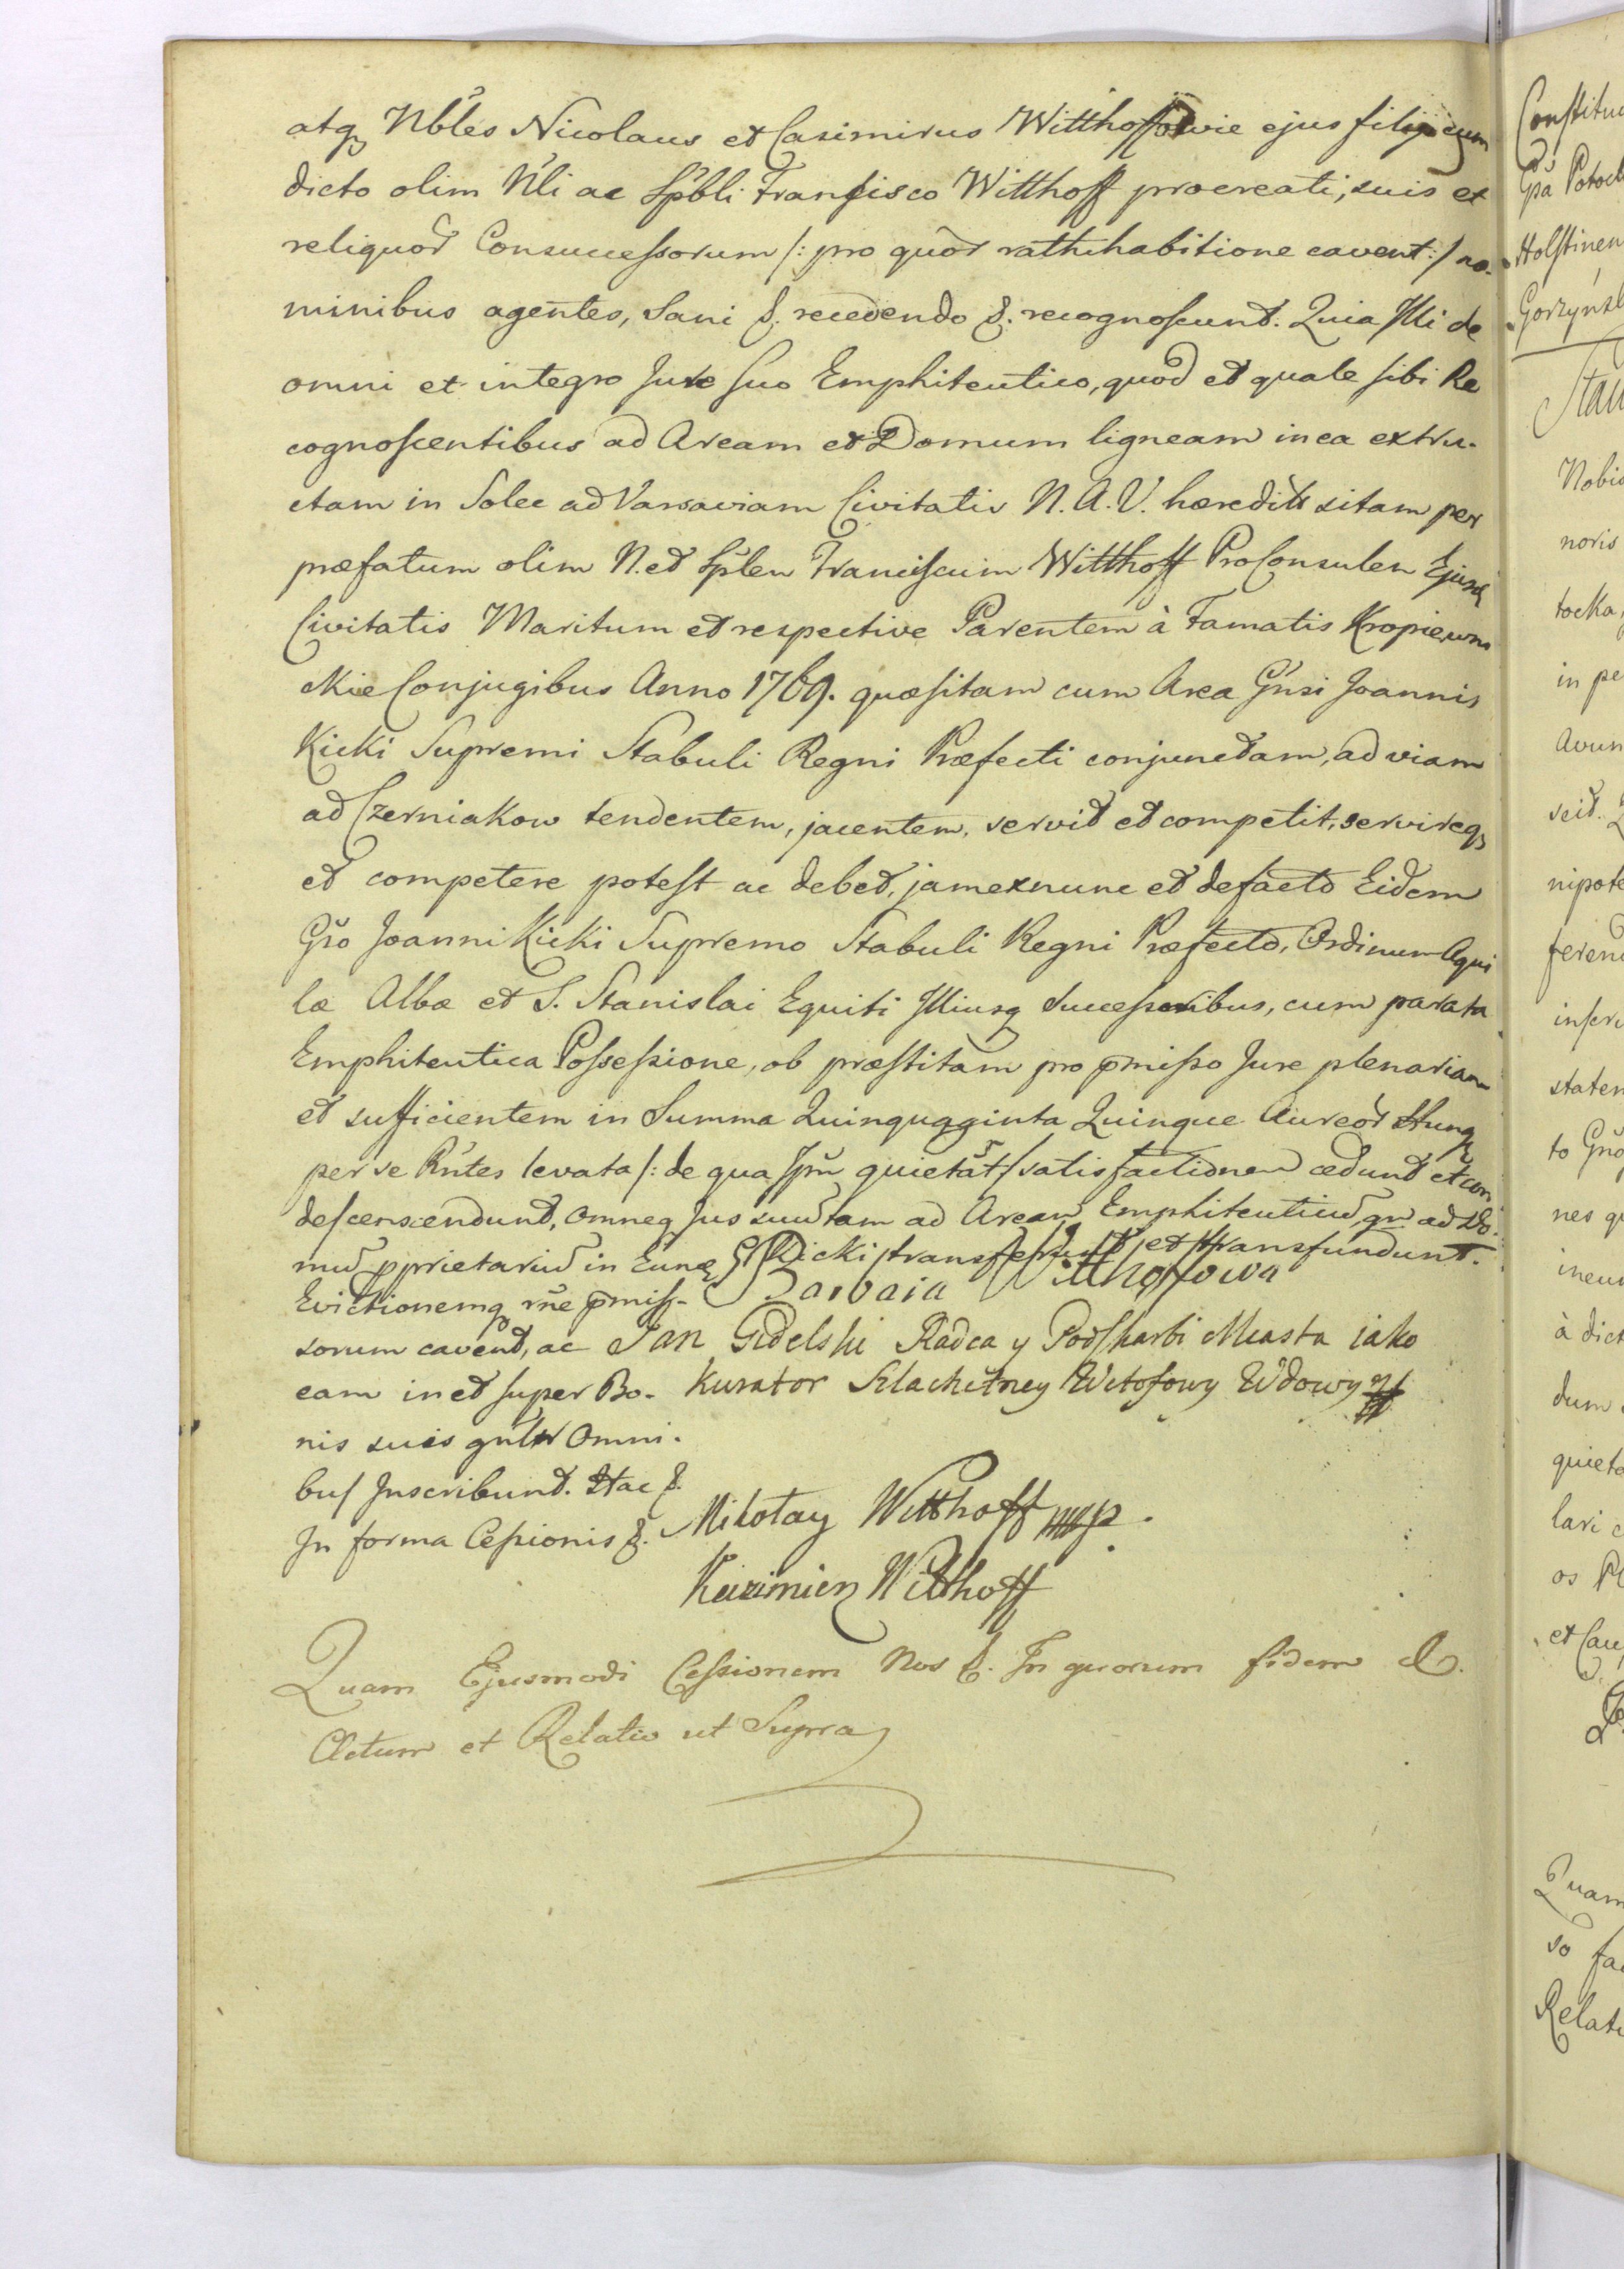 atqꝫ Nbles Nicolaus et Casimirus Witthoffowie ejus filii cum
dicto olim Nli ac Spbli Francisco Witthoff procreati, suis et
reliquor Consuccessorum /: pro quor rathihabitione cavent :/ no-
minibus agentes, Sani &. recedendo &. recognoscunt. Quia Illi de
omni et integro Jure suo Emphiteutico, quod et quale sibi Re
cognoscentibus ad Aream et Domum ligneam in ea extru-
ctam in Solec ad Varsaviam Civitatis N. A. V. hæredit sitam per
præfatum olim N. et Splem Franciscum Witthoff ProConsulem Ejusd
Civitatis Maritum et respective Parentem à Famatis Kropiewni
ckie Conjugibus Anno 1769. quæsitam cum Area Gnsi Joannis
Kicki Supremi Stabuli Regni Præfecti conjunctam, ad viam
ad Czerniakow tendentem, jacentem, servit et competit, servireqꝫ
et competere potest ac debet, jam ex nunc et de facto Eidem
Gso Joanni Kicki Supremo Stabuli Regni Præfecto, Ordinum Aqui
læ Albæ et S. Stanislai Equiti Illiusq Successoribus, cum parata
Emphiteutica Possessione, ob præstitam pro pmisso Jure plenariam
et sufficientem in Summa Quinquaginta Quinque Aureor Hung
per se Rntes levata /: de qua Ipm quietat :/ satisfactionem cedunt et con
descenscendunt, omneq Jus suum tam ad Aream Emphiteuticum, qm ad Do-
mum pprietarium in Eund G Kicki transferunt et transfundunt.
Evictionemq rne pmiss- Barbara Witthofowa
sorum cavent, ac Jan Gidelski Radca y Podskarbi Miasta iako
eam in et super Bo- Kurator Szlachetney Witofowy Wdowy
nis suis gnltr Omni-
bus Inscribunt. Hac &.
In forma Cessionis &. Mikołay Witthoff mp.
Kazimierz Witthoff
Quam Ejusmodi Cessionem Nos &. In quorum fidem &.
Actum et Relatio ut Supra
Constitu
Gsa Potoc
Holstinen
Gorzynsk
Nobis
noris
tocka,
in pe
Avun
scit.
nipote
ferend
inscri
staten
to Gso
nes q
ineun
à dict
dum
quieta
lari c
os
et Cau
Quam
so fa
Relati